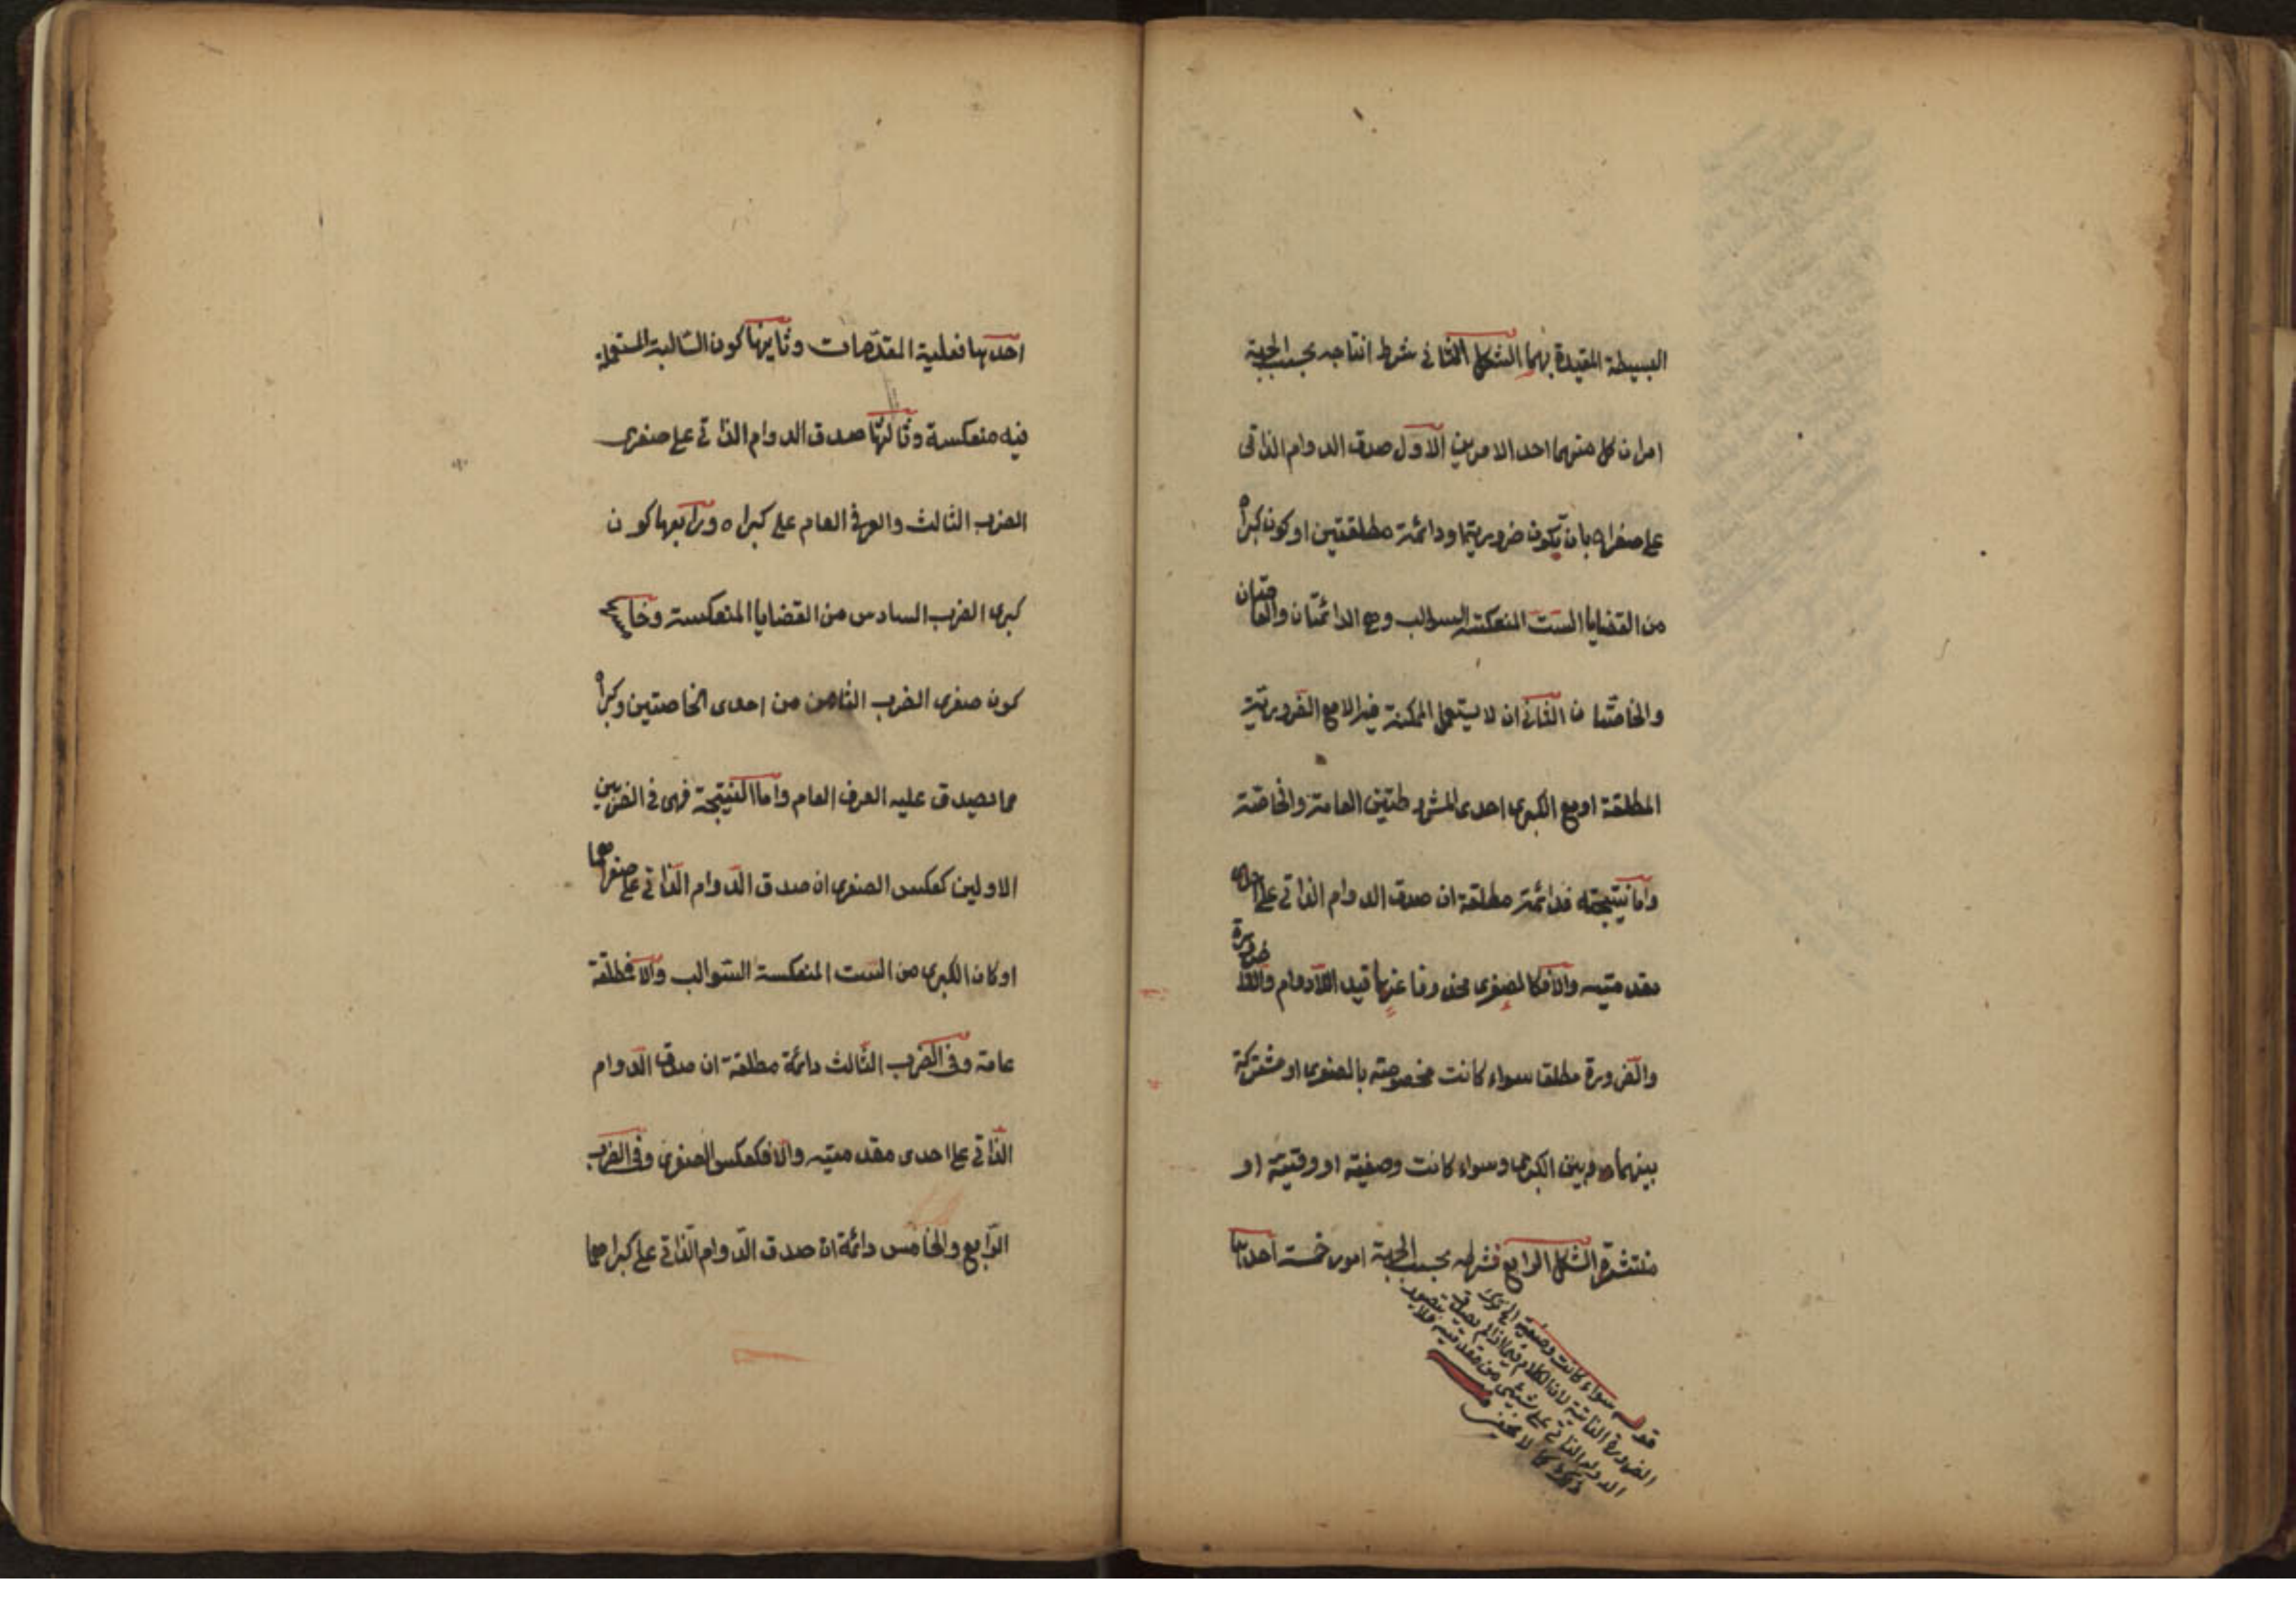 البسيطة المقيدة بهما الشكل الثاني شرط انتاجه بحسب الجهة
امران كل منهما احد الامرين الاول صدق الدوام الذاتي
على صغراه بان يكون ضرورية او دائمة مطلقتين او كون كبراه
من القضايا الست المنعكسة السوالب وهي الدائمتان والعامتان
والخاصتان الثاني ان لا يستعمل الممكنة فيه الا مع الضرورية
المطلقة او مع الكبرى احدى المشروطتين العامة والخاصة
واما نتيجته فدائمة مطلقة ان صدق الدوام الذاتي على احدى
مقدمتيه والا فكالصغرى محذوفا عنها قيد اللادوام واللاضرورة
والضرورة مطلقا سواء كانت مخصوصة بالصغرى او مشتركة
بينهما وبين الكبرى وسواء كانت وصفية او وقتية او
منتشرة الشكل الرابع فشرطه بحسب الجهة امور خمسة احدها
قوله سواء كانت وصفية
الضرورة الذاتية لان الكلام فيما اذا لم يصدق
الدوام الذاتي على شيء من مقدمتيه فلا يتصور
ذلك كما لا يخفى
احدها فعلية المقدمات وثانيها كون السالبة المستعملة
فيه منعكسة وثالثها صدق الدوام الذاتي على صغرى
الضرب الثالث والعرفي العام على كبراه ورابعها كون
كبرى الضرب السادس من القضايا المنعكسة وخامسها
كون صغرى الضرب الثامن من احدى الخاصتين وكبراه
مما يصدق عليه العرفي العام واما النتيجة فهي في الضربين
الاولين كعكس الصغرى ان صدق الدوام الذاتي على صغراهما
او كان الكبرى من الست المنعكسة السوالب والا فمطلقة
عامة وفي الضرب الثالث دائمة مطلقة ان صدق الدوام
الذاتي على احدى مقدمتيه والا فكعكس الصغرى وفي الضرب
الرابع والخامس دائمة ان صدق الدوام الذاتي على كبراهما